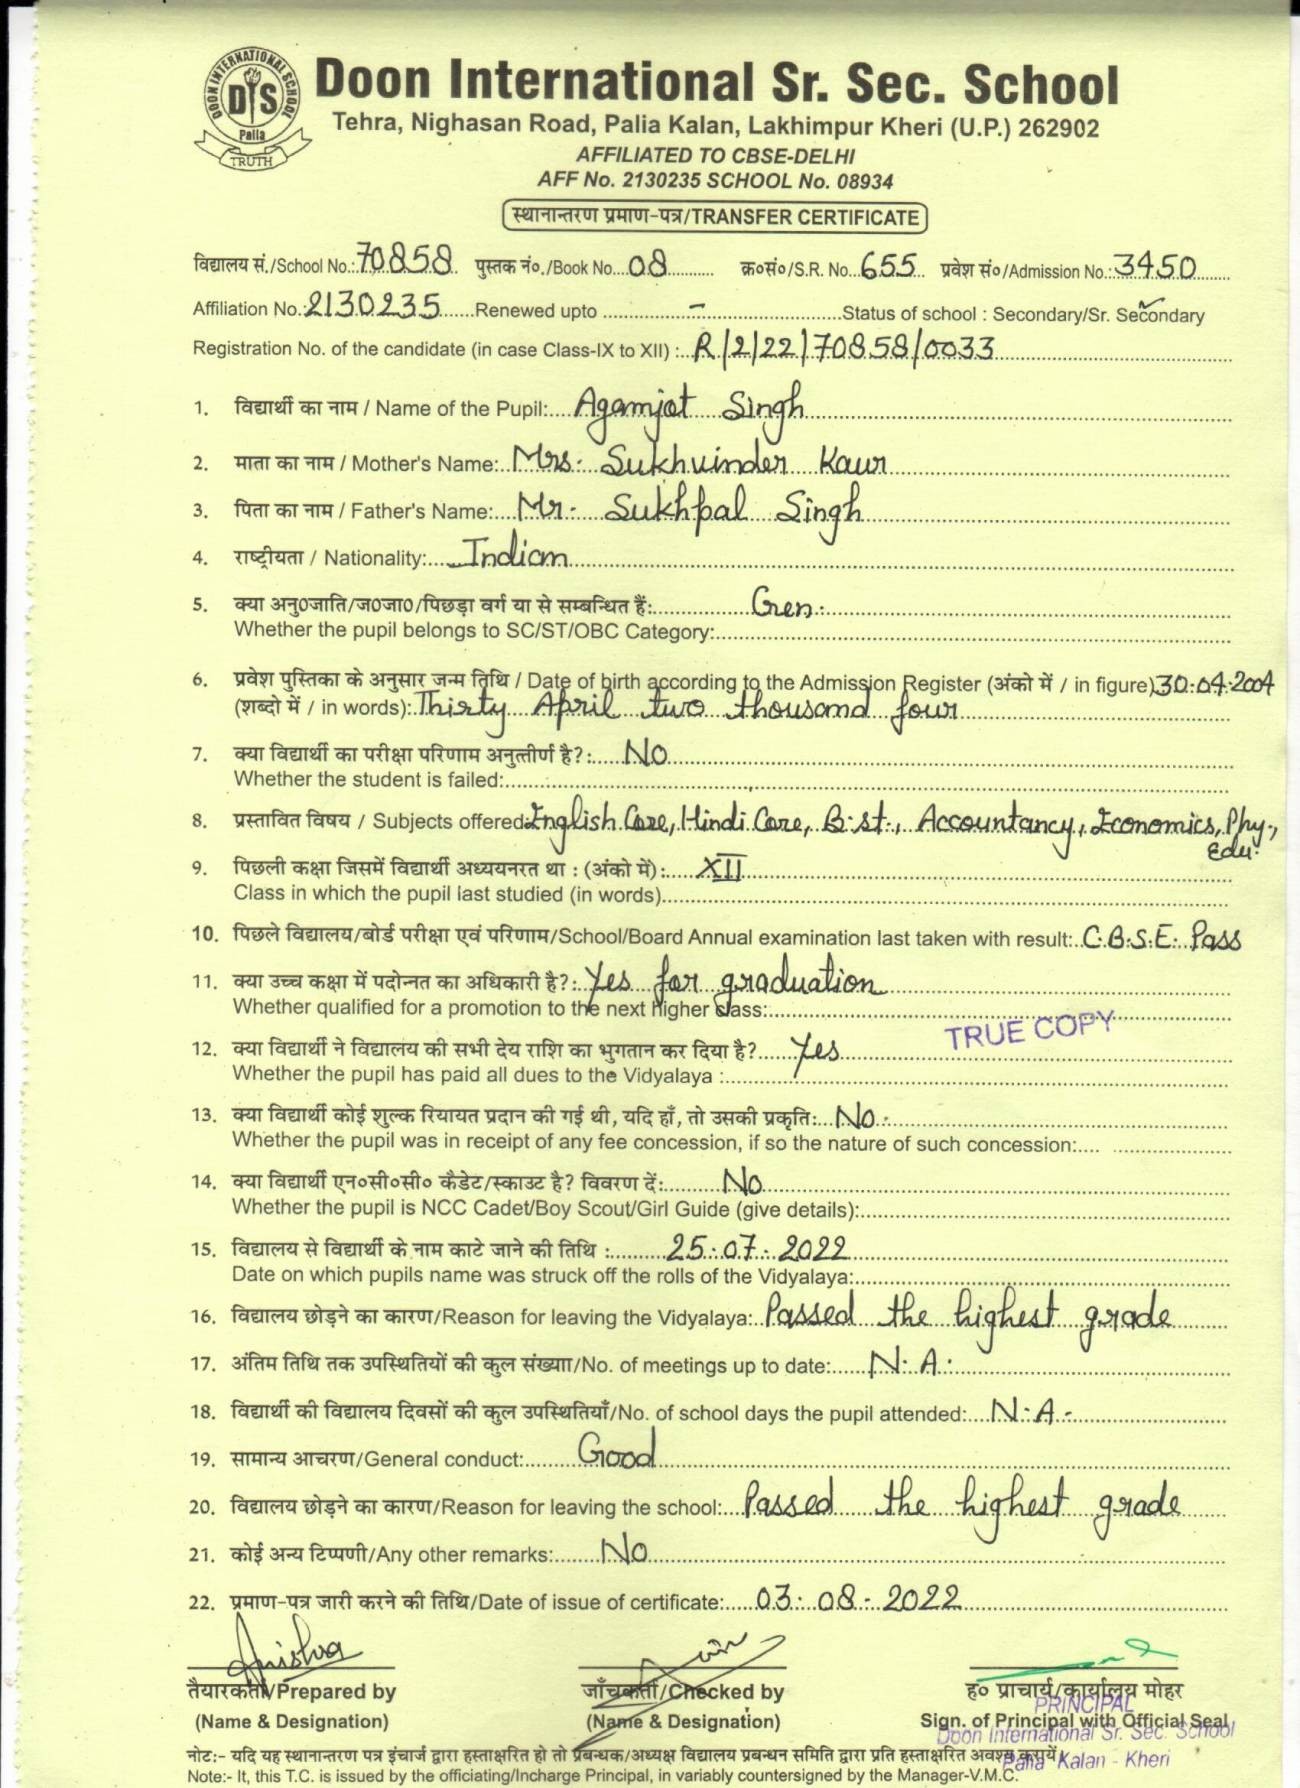 DOON INTERNATIONAL SCHOOL
DIS
Palia
TRUTH
Doon International Sr. Sec. School
Tehra, Nighasan Road, Palia Kalan, Lakhimpur Kheri (U.P.) 262902
AFFILIATED TO CBSE-DELHI
AFF No. 2130235 SCHOOL No. 08934
स्थानान्तरण प्रमाण-पत्र/TRANSFER CERTIFICATE
विद्यालय सं./School No.: 70858 पुस्तक नं०./Book No. 08 क्र०सं०/S.R. No. 655 प्रवेश सं०/Admission No.: 3450
Affiliation No.: 2130235 Renewed upto - Status of school : Secondary/Sr. Secondary
Registration No. of the candidate (in case Class-IX to XII) : R/2/22/70858/0033
1. विद्यार्थी का नाम / Name of the Pupil: Agamjot Singh
2. माता का नाम / Mother's Name: Mrs. Sukhvinder Kaur
3. पिता का नाम / Father's Name: Mr. Sukhpal Singh
4. राष्ट्रीयता / Nationality: Indian
5. क्या अनु०जाति/ज०जा०/पिछड़ा वर्ग या से सम्बन्धित हैं: Gen.
Whether the pupil belongs to SC/ST/OBC Category:
6. प्रवेश पुस्तिका के अनुसार जन्म तिथि / Date of birth according to the Admission Register (अंको में / in figure) 30.04.2004
(शब्दो में / in words): Thirty April two thousand four
7. क्या विद्यार्थी का परीक्षा परिणाम अनुत्तीर्ण है?: No
Whether the student is failed:
8. प्रस्तावित विषय / Subjects offered: English Core, Hindi Core, B.st., Accountancy, Economics, Phy.,
Edu.
9. पिछली कक्षा जिसमें विद्यार्थी अध्ययनरत था : (अंको में): XII
Class in which the pupil last studied (in words)
10. पिछले विद्यालय/बोर्ड परीक्षा एवं परिणाम/School/Board Annual examination last taken with result: C.B.S.E. Pass
11. क्या उच्च कक्षा में पदोन्नत का अधिकारी है?: Yes for graduation
Whether qualified for a promotion to the next higher class:
TRUE COPY
12. क्या विद्यार्थी ने विद्यालय की सभी देय राशि का भुगतान कर दिया है? Yes
Whether the pupil has paid all dues to the Vidyalaya :
13. क्या विद्यार्थी कोई शुल्क रियायत प्रदान की गई थी, यदि हाँ, तो उसकी प्रकृति: No.
Whether the pupil was in receipt of any fee concession, if so the nature of such concession:
14. क्या विद्यार्थी एन०सी०सी० कैडेट/स्काउट है? विवरण दें: No
Whether the pupil is NCC Cadet/Boy Scout/Girl Guide (give details):
15. विद्यालय से विद्यार्थी के नाम काटे जाने की तिथि : 25.07.2022
Date on which pupils name was struck off the rolls of the Vidyalaya:
16. विद्यालय छोड़ने का कारण/Reason for leaving the Vidyalaya: Passed the highest grade
17. अंतिम तिथि तक उपस्थितियों की कुल संख्याा/No. of meetings up to date: N.A.
18. विद्यार्थी की विद्यालय दिवसों की कुल उपस्थितियाँ/No. of school days the pupil attended: N.A.
19. सामान्य आचरण/General conduct: Good
20. विद्यालय छोड़ने का कारण/Reason for leaving the school: Passed the highest grade
21. कोई अन्य टिप्पणी/Any other remarks: No
22. प्रमाण-पत्र जारी करने की तिथि/Date of issue of certificate: 03.08.2022
तैयारकर्ता/Prepared by जाँचकर्ता/Checked by ह० प्राचार्य/कार्यालय मोहर
(Name & Designation) (Name & Designation) Sign. of Principal with Official Seal
PRINCIPAL
Doon International Sr. Sec. School
Palia Kalan - Kheri
नोट:- यदि यह स्थानान्तरण पत्र इंचार्ज द्वारा हस्ताक्षरित हो तो प्रबन्धक/अध्यक्ष विद्यालय प्रबन्धन समिति द्वारा प्रति हस्ताक्षरित अवश्य करायें,
Note:- It, this T.C. is issued by the officiating/Incharge Principal, in variably countersigned by the Manager-V.M.C.